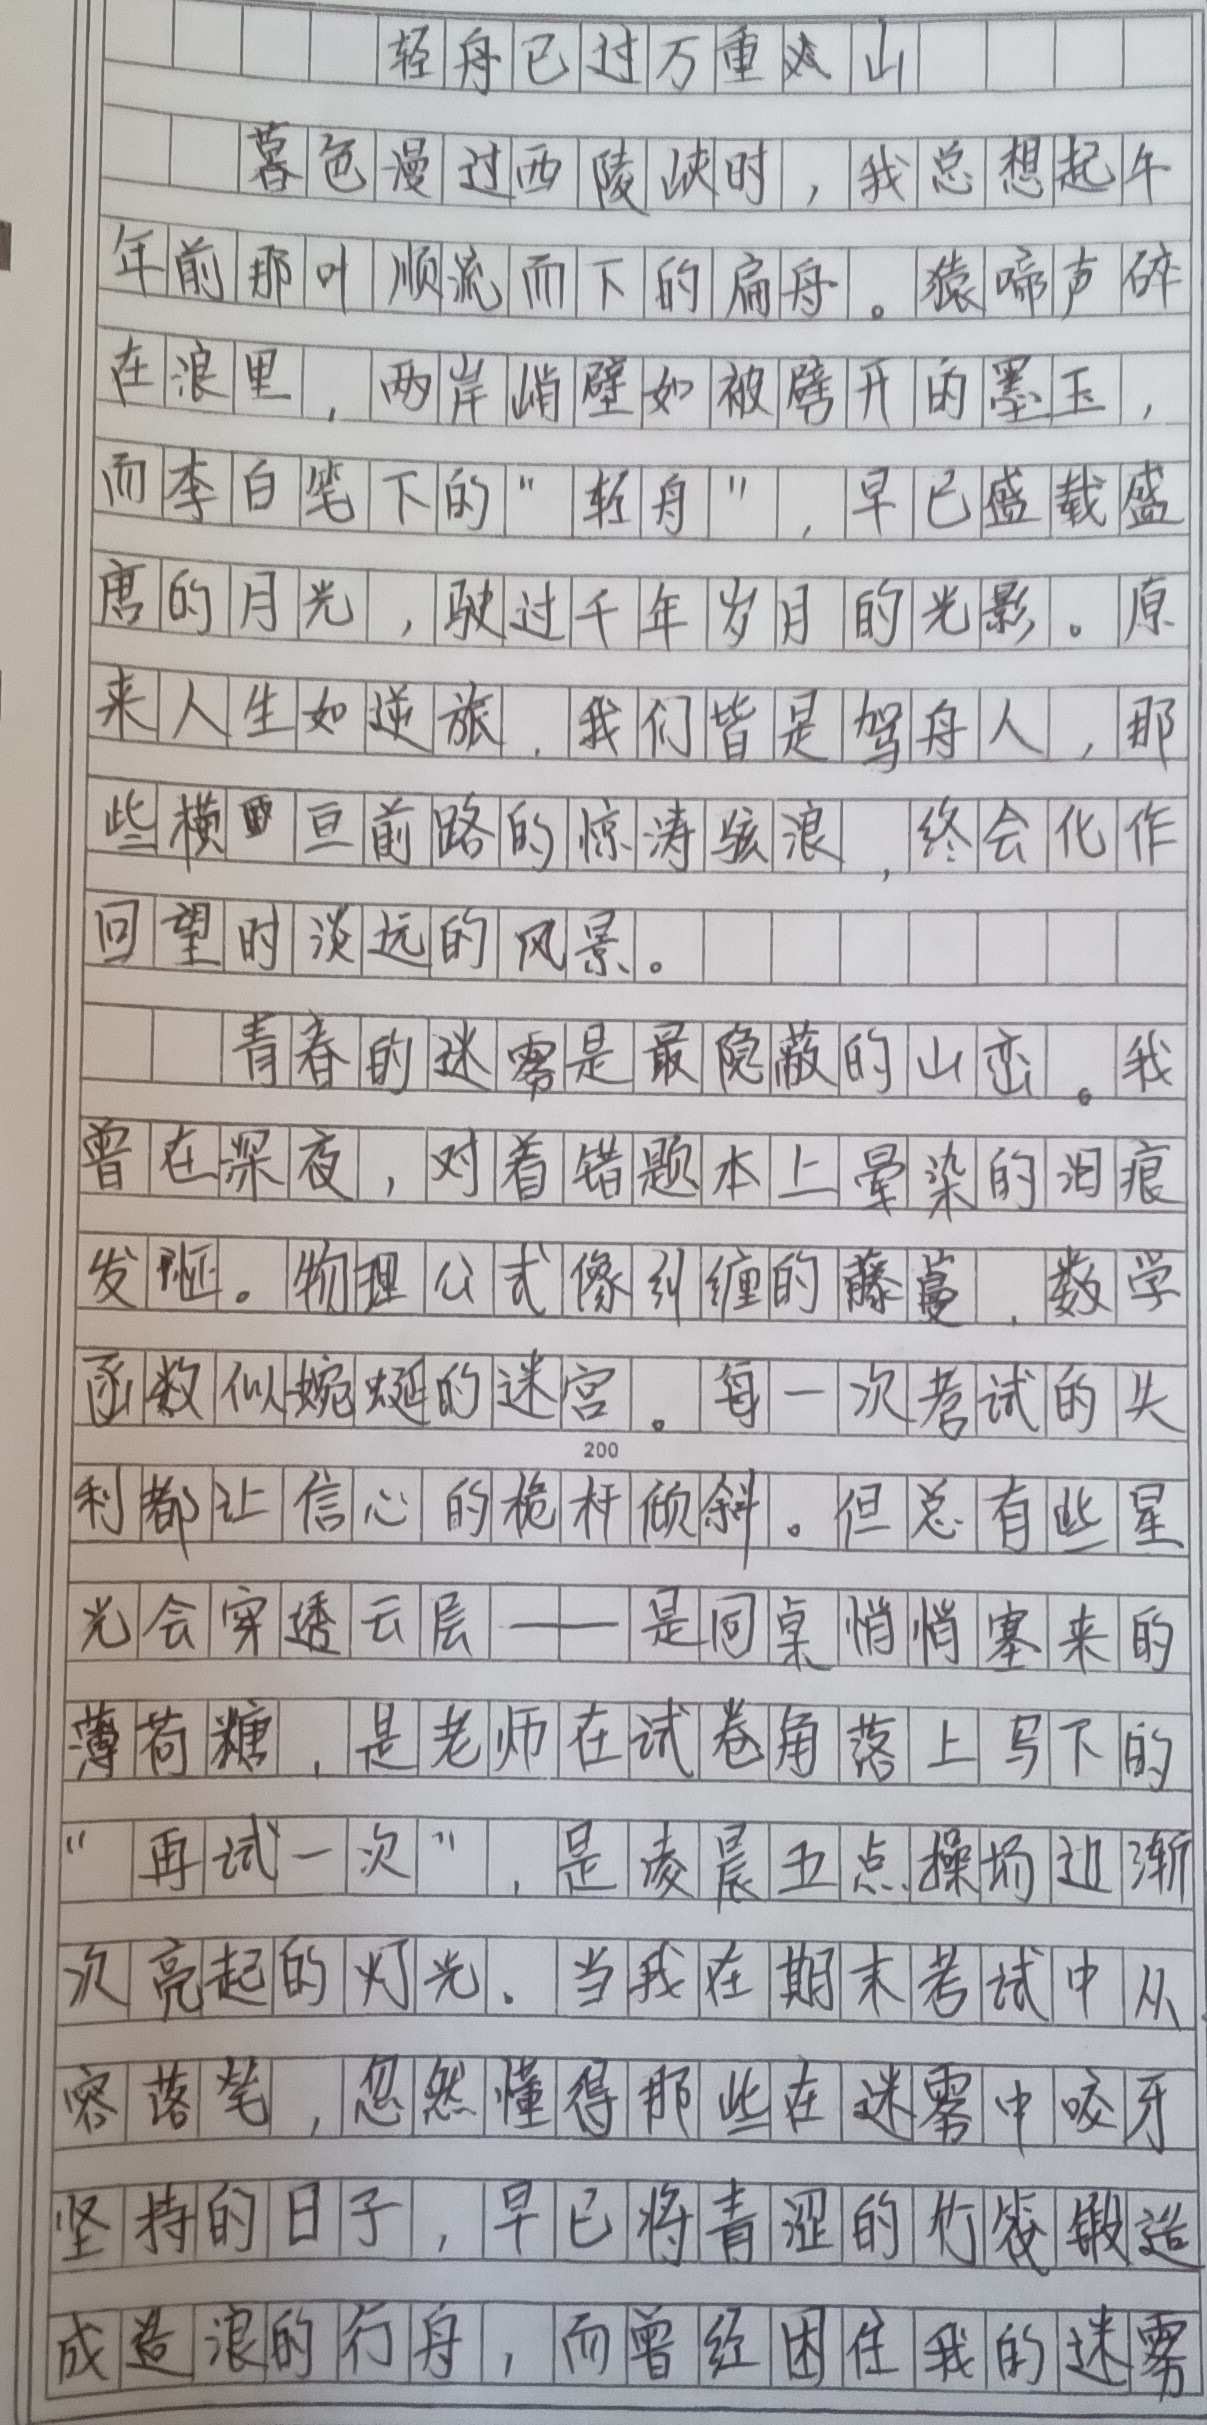 轻舟已过万重山
暮色漫过西陵峡时，我总想起午
年前那叶顺流而下的扁舟。猿啼声碎
在浪里，两岸峭壁如被劈开的墨玉，
而李白笔下的“轻舟”，早已盛载盛
唐的月光，驶过千年岁月的光影。原
来人生如逆旅，我们皆是驾舟人，那
些横亘前路的惊涛骇浪，终会化作
回望时淡远的风景。
青春的迷雾是最隐蔽的山峦。我
曾在深夜，对着错题本上晕染的泪痕
发怔。物理公式像纠缠的藤蔓，数学
函数似蜿蜒的迷宫。每一次考试的失
200
利都让信心的桅杆倾斜。但总有些星
光会穿透云层——是同桌悄悄塞来的
薄荷糖，是老师在试卷角落上写下的
“再试一次”，是凌晨五点操场边渐
次亮起的灯光。当我在期末考试中从
容落笔，忽然懂得那些在迷雾中咬牙
坚持的日子，早已将青涩的竹筏锻造
成造浪的行舟，而曾经困住我的迷雾